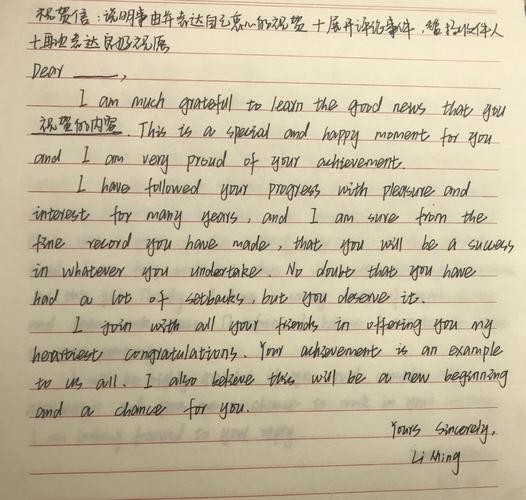 祝贺信：说明事由并表达自己衷心的祝贺＋展开评论事件，赞扬收件人
＋再次表达良好祝愿
Dear ____,
I am much grateful to learn the good news that you
祝贺的内容. This is a special and happy moment for you
and I am very proud of your achievement.
I have followed your progress with pleasure and
interest for many years, and I am sure from the
fine record you have made, that you will be a success
in whatever you undertake. No doubt that you have
had a lot of setbacks, but you deserve it.
I join with all your friends in offering you my
heartiest congratulations. Your achievement is an example
to us all. I also believe this will be a new beginning
and a chance for you.
Yours sincerely,
Li Ming